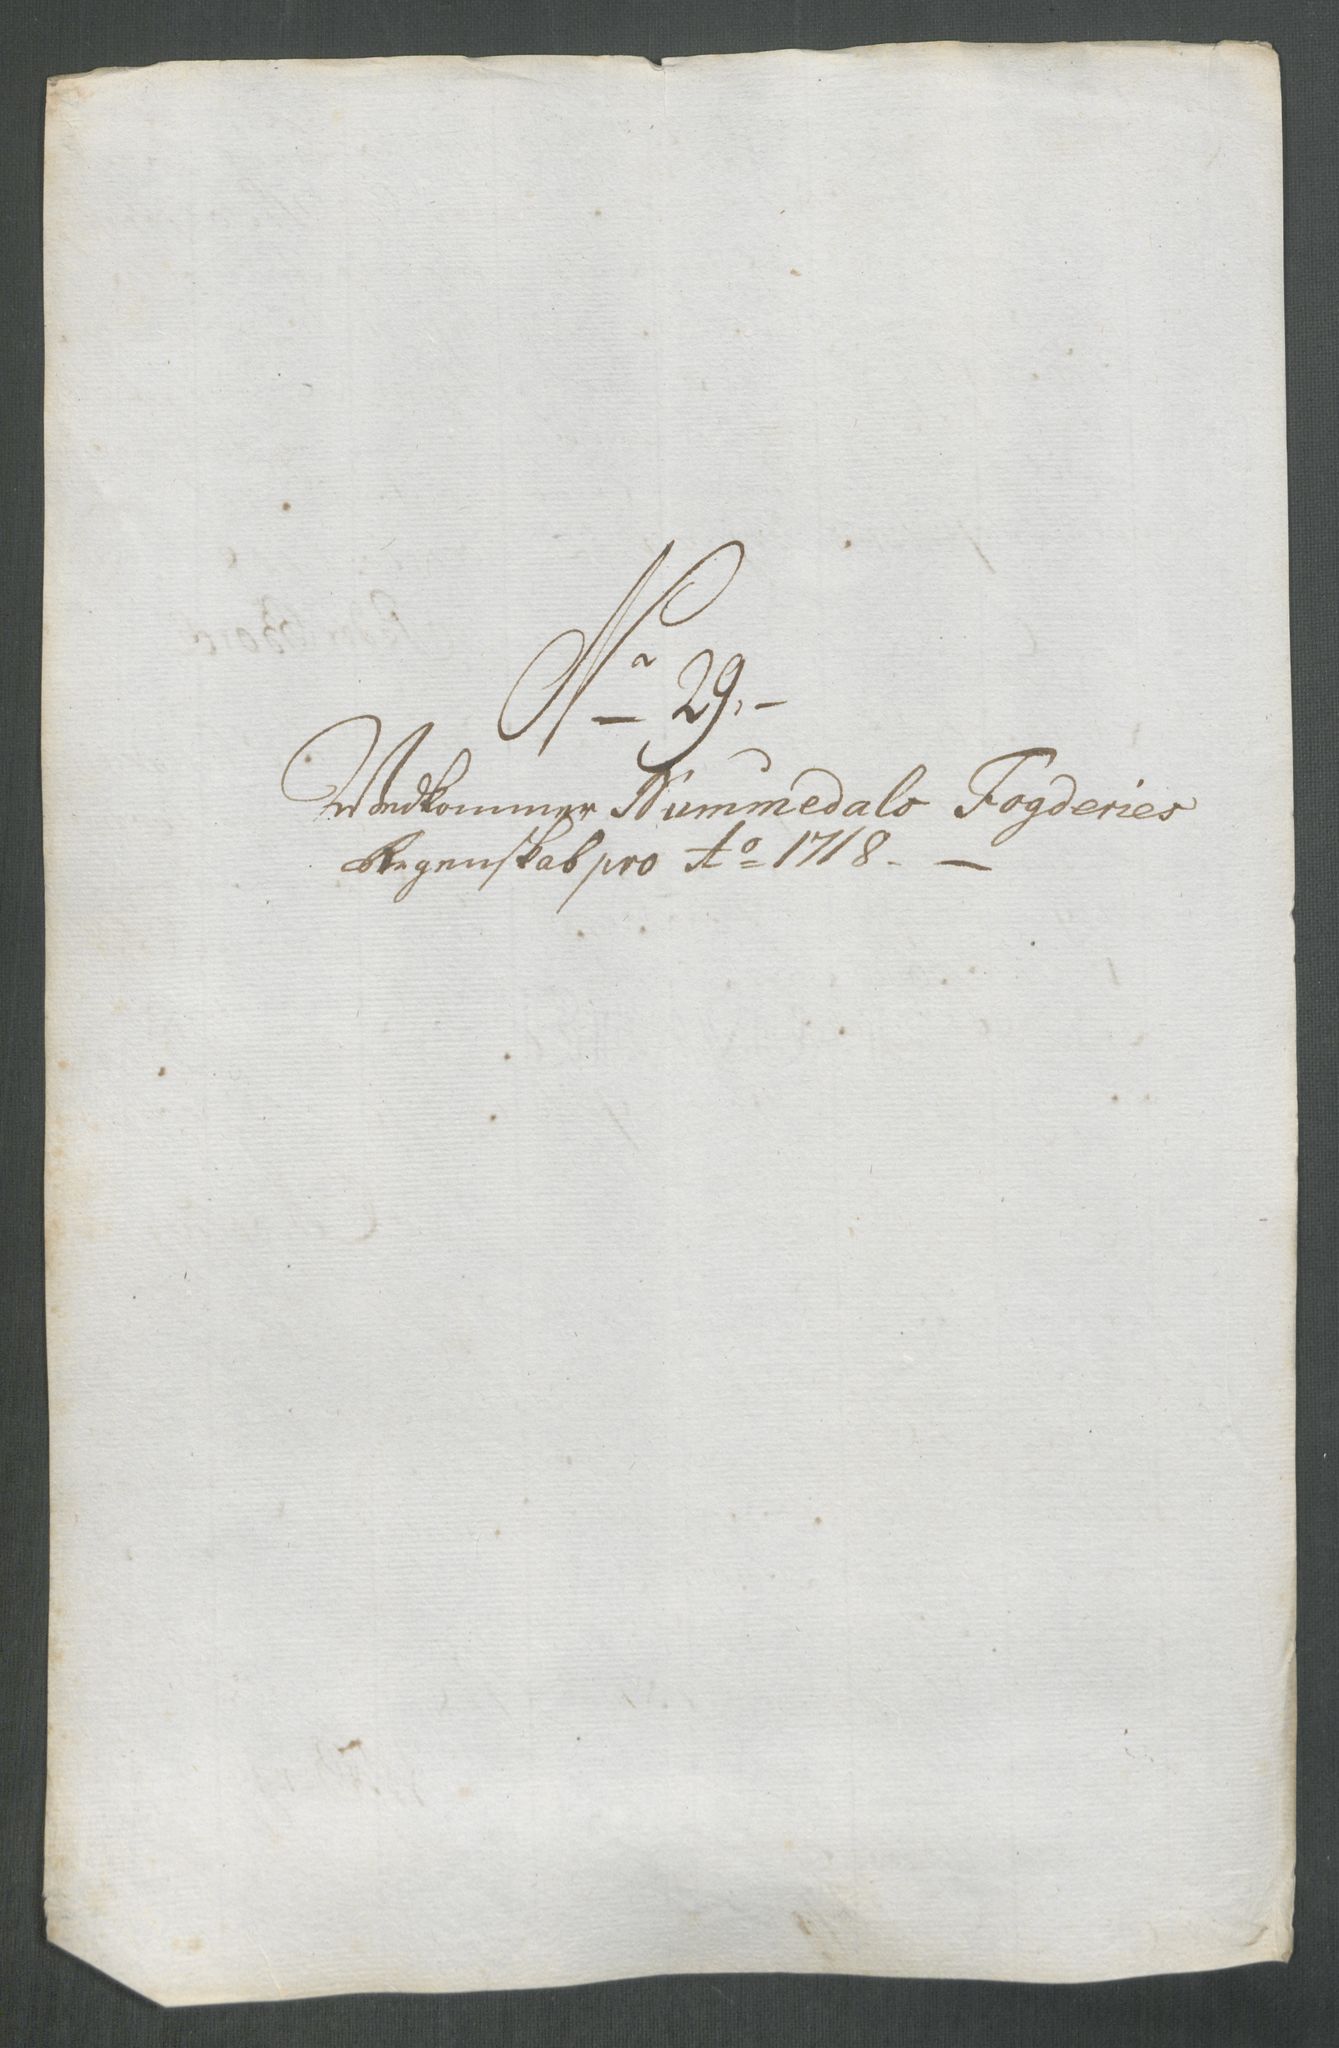 No 29.
Vedkommer Nummedals Fogderies
Regenskab pro Ao 1718.